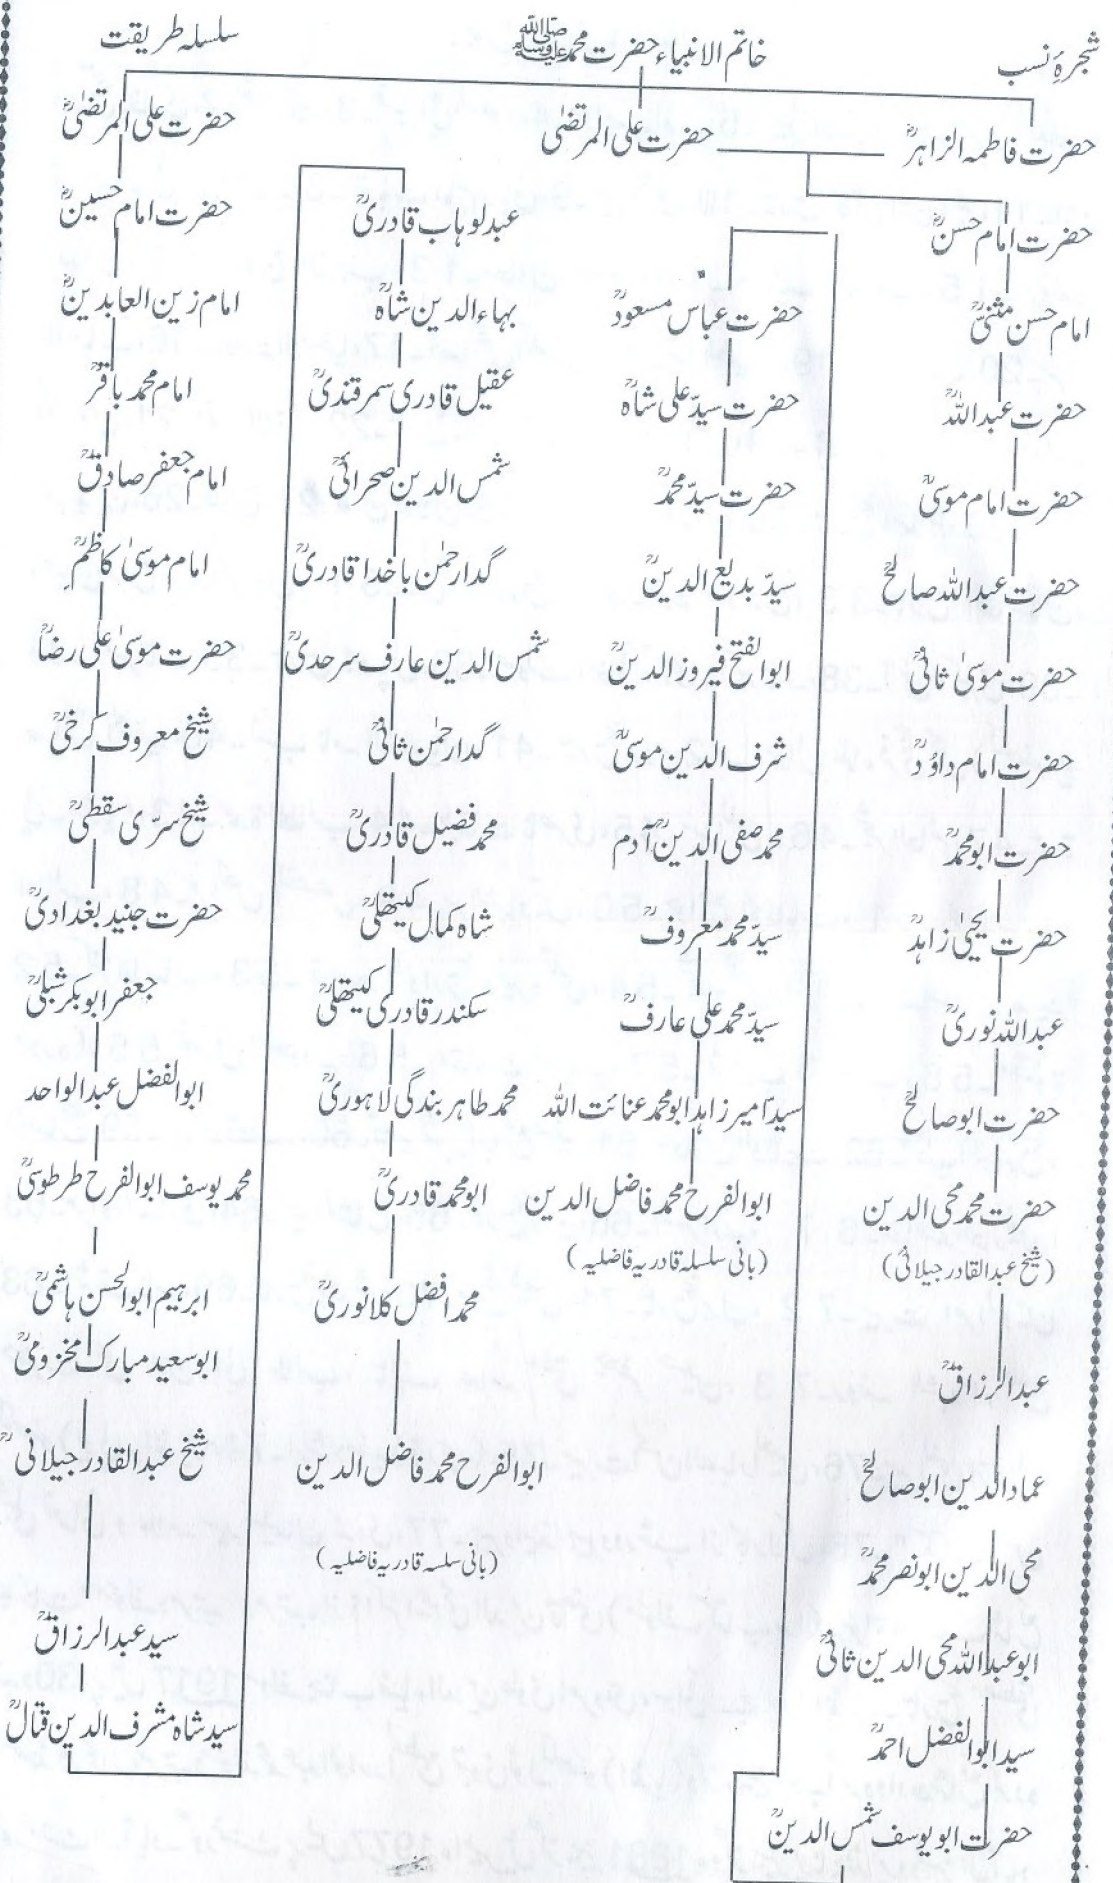 شجرۂ نسب
خاتم الانبیاء حضرت محمد ﷺ
سلسلہ طریقت
حضرت فاطمہ الزاہرؓ
حضرت علی المرتضٰی
حضرت امام حسنؓ
امام حسن مثنیٰؒ
حضرت عبداللہؒ
حضرت امام موسیٰؒ
حضرت عبداللہ صالحؒ
حضرت موسیٰ ثانیؒ
حضرت امام داؤدؒ
حضرت ابو محمدؒ
حضرت یحیٰی زاہدؒ
عبداللہ نوریؒ
حضرت ابو صالحؒ
حضرت محمد محی الدین
(شیخ عبدالقادر جیلانیؒ)
عبدالرزاقؒ
عمادالدین ابو صالحؒ
محی الدین ابو نصر محمدؒ
ابو عبداللہ محی الدین ثانیؒ
سید ابوالفضل احمدؒ
حضرت ابو یوسف شمس الدینؒ
حضرت عباس مسعودؒ
حضرت سیدّ علی شاہؒ
حضرت سیدّ محمدؒ
سیدّ بدیع الدینؒ
ابوالفتح فیروز الدینؒ
شرف الدین موسیٰؒ
محمد صفی الدینؒ آدم
سیدّ محمد معروفؒ
سیدّ محمد علی عارفؒ
سید امیر زاہد ابو محمد عنائت اللہ
ابوالفرح محمد فاضل الدین
(بانی سلسلہ قادریہ فاضلیہ)
عبدلوہاب قادریؒ
بہاءالدین شاہؒ
عقیل قادری سمرقندیؒ
شمس الدین صحرائیؒ
گدارحمٰن باخدا قادریؒ
شمس الدین عارف سرحدیؒ
گدارحمٰن ثانیؒ
محمد فضیل قادریؒ
شاہ کمال کیتھلیؒ
سکندر قادری کیتھلیؒ
محمد طاہر بندگی لاہوریؒ
ابو محمد قادریؒ
محمد افضل کلانوریؒ
ابوالفرح محمد فاضل الدین
(بانی سلسہ قادریہ فاضلیہ)
حضرت علی المرتضٰیؓ
حضرت امام حسینؓ
امام زین العابدینؓ
امام محمد باقرؒ
امام جعفر صادقؒ
امام موسیٰ کاظمؒ
حضرت موسیٰ علی رضاؒ
شیخ معروف کرخیؒ
شیخ سرّی سقطیؒ
حضرت جنید بغدادیؒ
جعفر ابوبکر شبلیؒ
ابوالفضل عبدالواحد
محمد یوسف ابوالفرح طرطوسیؒ
ابرہیم ابوالحسن ہاشمیؒ
ابو سعید مبارک مخزومیؒ
شیخ عبدالقادر جیلانیؒ
سید عبدالرزاقؒ
سید شاہ مشرف الدین قتالؒ